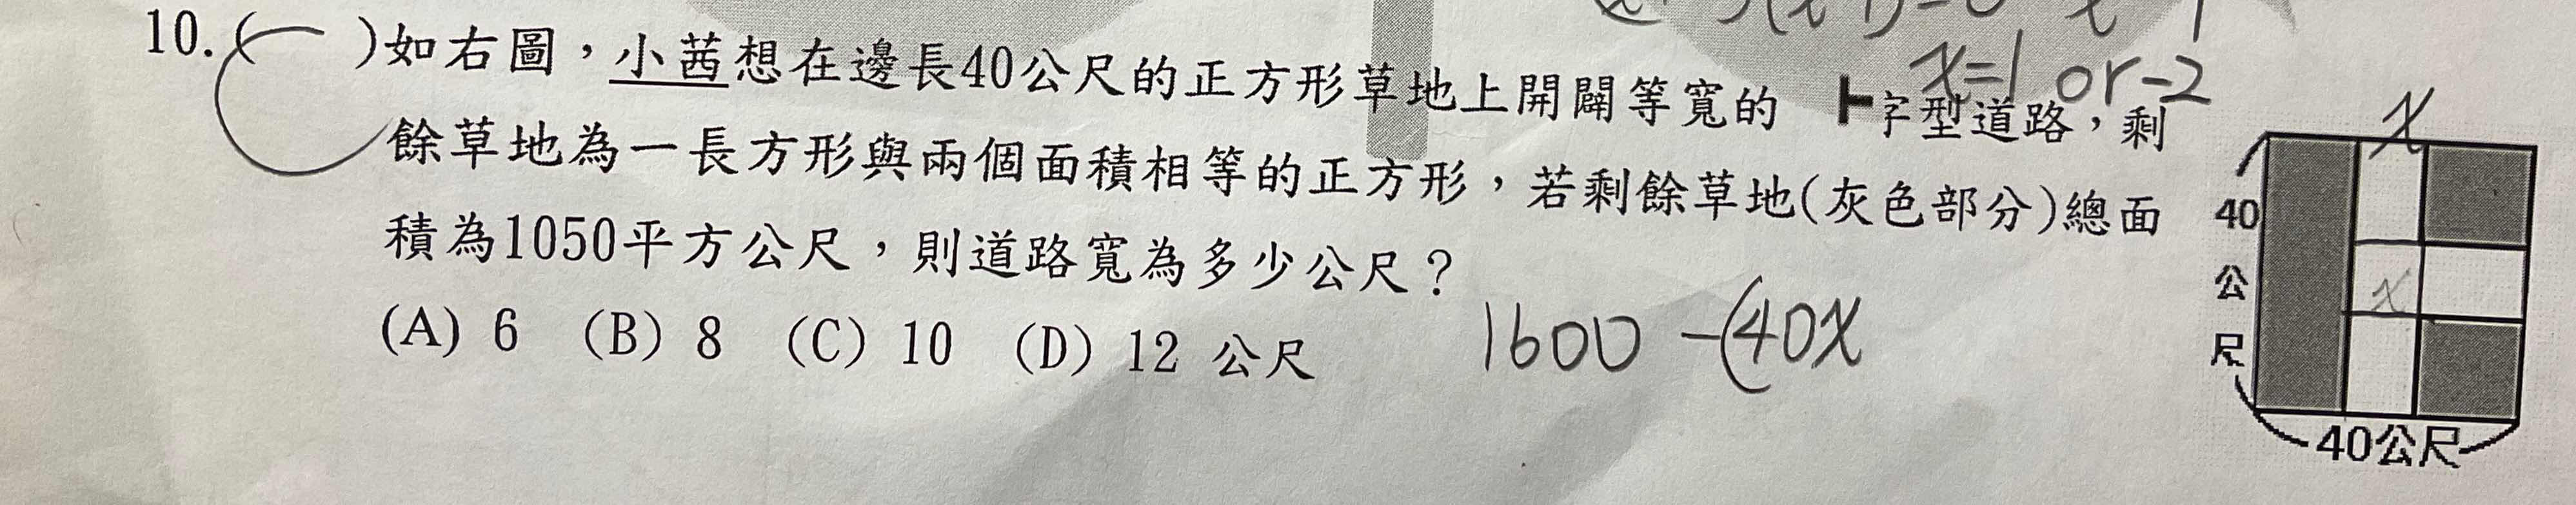 x=1 or -2
10.( )如右圖，小茜想在邊長40公尺的正方形草地上開闢等寬的 ┣字型道路，剩
餘草地為一長方形與兩個面積相等的正方形，若剩餘草地(灰色部分)總面
積為1050平方公尺，則道路寬為多少公尺？
(A) 6 (B) 8 (C) 10 (D) 12 公尺
1600 -(40x
x
40公尺
x
40公尺